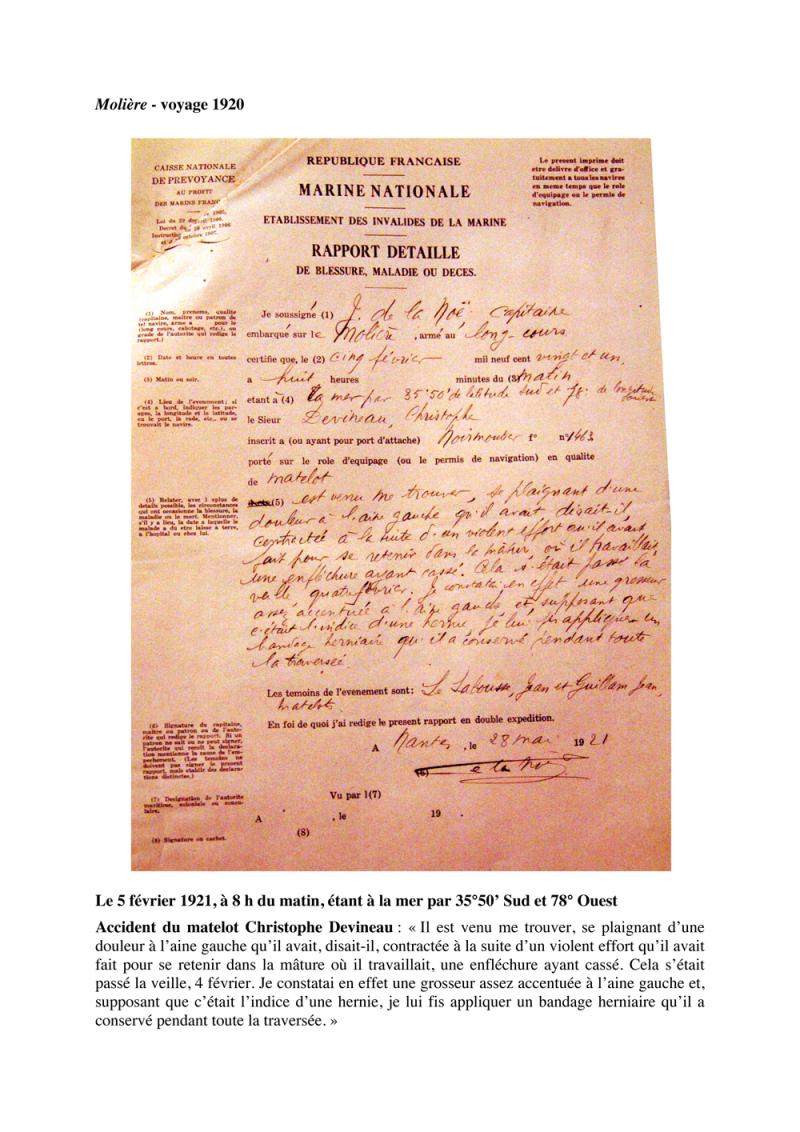 Molière - voyage 1920
CAISSE NATIONALE
DE PREVOYANCE
AU PROFIT
DES MARINS FRANÇ
Loi du 29
Decret du avril 1906
REPUBLIQUE FRANCAISE
MARINE NATIONALE
ETABLISSEMENT DES INVALIDES DE LA MARINE
RAPPORT DETAILLE
DE BLESSURE, MALADIE OU DECES.
Le present imprime doit
etre delivre d'office et gra-
tuitement a tous les navires
en meme temps que le role
d'equipage ou le permis de
navigation.
(1) Nom, prenoms, qualite
(capitaine, maitre ou patron de
tel navire, arme a pour le
(long cours, cabotage, etc.), ou
grade de l'autorite qui redige le
rapport.)
(2) Date et heure en toutes
lettres.
(3) Matin ou soir.
(4) Lieu de l'evenement; si
c'est a bord, indiquer les par-
ages, la longitude et la latitude,
ou le port, la rade, etc., ou se
trouvait le navire.
Je soussigné (1) J. de la Noë capitaine
embarqué sur le Molière, armé au long-cours
certifie que, le (2) cinq février mil neuf cent vingt et un,
a huit heures minutes du (3) matin
etant à (4) la mer par 35°50' de latitude sud et 78° de longitude
le Sieur Devineau, Christophe
inscrit a (ou ayant pour port d'attache) Noirmoutier f° n° 1463
porté sur le role d'equipage (ou le permis de navigation) en qualite
de matelot
(5) Relater, avec l plus de
details possible, les circonstances
qui ont occasionne la blessure, la
maladie ou la mort. Mentionner,
s'il y a lieu, la date a laquelle le
malade a du etre laisse à terre,
a l'hopital ou chez lui.
(5) est venu me trouver, se plaignant d'une
douleur à l'aine gauche qu'il avait disait-il,
contractée à la suite d'un violent effort qu'il avait
fait pour se retenir dans la mâture, où il travaillait,
une enfléchure ayant cassé. Cela s'était passé la
veille quatre février. Je constatai en effet une grosseur
assez accentuée à l'aine gauche et, supposant que
c'était l'indice d'une hernie je lui fis appliquer un
bandage herniaire qu'il a conservé pendant toute
la traversée.
Les temoins de l'evenement sont: Le Labousse, Jean et Guillam Jean,
matelots
En foi de quoi j'ai redige le present rapport en double expedition.
A Nantes, le 28 mai 1921
(6) Signature du capitaine,
maitre ou patron ou de l'auto-
rite qui redige le rapport. Si un
patron ne sait ou ne peut signer,
l'autorite qui recoit la declara-
tion mentionne la cause de l'em-
pechement. (Les temoins ne
doivent pas signer le present
rapport, mais etablir des declara-
tions distinctes.)
(6) de la Noë
(7) Designation de l'autorite
maritime, coloniale ou consu-
laire.
Vu par l(7)
A , le 19 .
(8)
(8) Signature ou cachet.
Le 5 février 1921, à 8 h du matin, étant à la mer par 35°50’ Sud et 78° Ouest
Accident du matelot Christophe Devineau : « Il est venu me trouver, se plaignant d’une
douleur à l’aine gauche qu’il avait, disait-il, contractée à la suite d’un violent effort qu’il avait
fait pour se retenir dans la mâture où il travaillait, une enfléchure ayant cassé. Cela s’était
passé la veille, 4 février. Je constatai en effet une grosseur assez accentuée à l’aine gauche et,
supposant que c’était l’indice d’une hernie, je lui fis appliquer un bandage herniaire qu’il a
conservé pendant toute la traversée. »